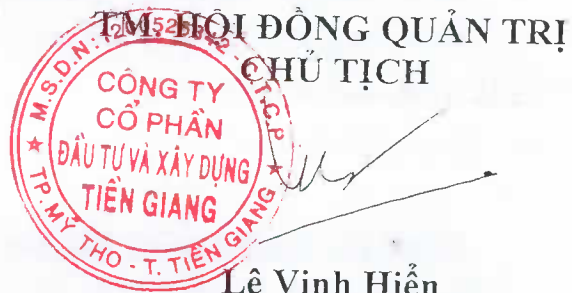 TM. HỘI ĐỒNG QUẢN TRỊ
CHỦ TỊCH
M.S.D.N: - C.T.C.P
CÔNG TY
CỔ PHẦN
ĐẦU TƯ VÀ XÂY DỰNG
TIỀN GIANG
TP.MỸ THO - T. TIỀN GIANG
Lê Vinh Hiển